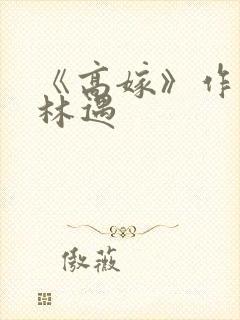 《高嫁》作
林遇
傲薇